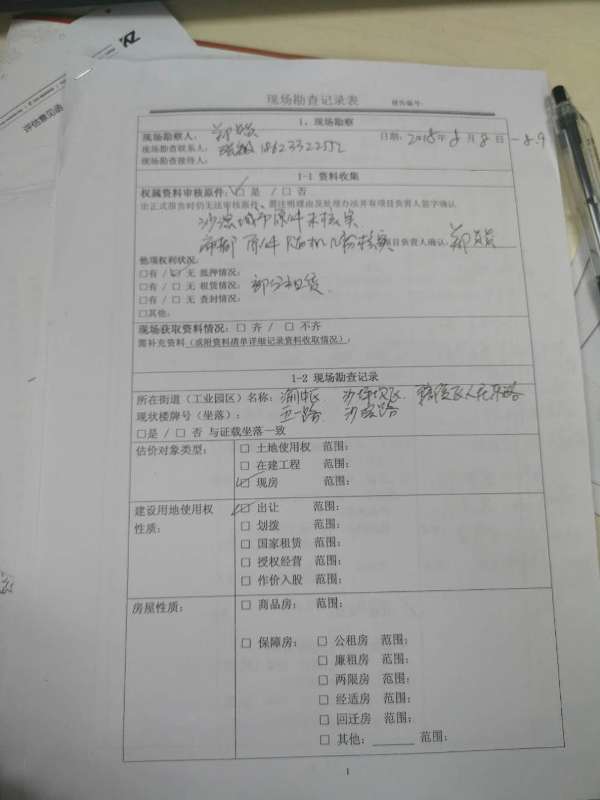 评估意见函
现场勘查记录表 报告编号:
1、现场勘察
现场勘察人: 日期: 2018年8月8日-8.9
现场勘查联系人: 18623322552
现场勘查接待人:
1-1 资料收集
权属资料审核原件:☑ 是 / □ 否
※正式报告时仍无法审核原件,需注明理由及处理办法并有项目负责人签字确认
原件未核实
原件 项目负责人确认:
他项权利状况:
□有 / ☑ 无 抵押情况:
□有 / □ 无 租赁情况: 部分租赁.
□有 / □ 无 查封情况:
□其他:
现场获取资料情况: □ 齐 / □ 不齐
需补充资料(或附资料清单详细记录资料收取情况):
1-2 现场勘查记录
所在街道(工业园区)名称: 渝中区. 沙坪坝区.
现状楼牌号(坐落): 五一路.
□是 / □ 否 与证载坐落一致
估价对象类型: □ 土地使用权 范围:
□ 在建工程 范围:
☑ 现房 范围:
建设用地使用权性质: ☑ 出让 范围:
□ 划拨 范围:
□ 国家租赁 范围:
□ 授权经营 范围:
□ 作价入股 范围:
房屋性质: □ 商品房: 范围:
□ 保障房: □ 公租房 范围:
□ 廉租房 范围:
□ 两限房 范围:
□ 经适房 范围:
□ 回迁房 范围:
□ 其他:______ 范围:
1